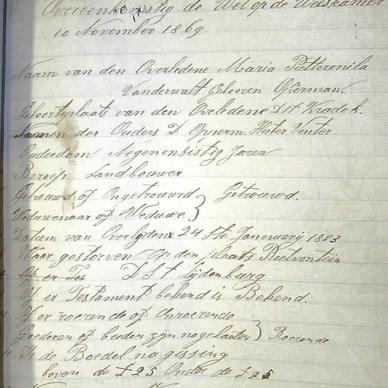 Overeenkomstig de Wet op de Weeskamer
10 November 1869
Naam van den Overledene Maria Pietronila
Vanderwalt Geboren Opperman.
Geboorteplaats van den Overledene Dst
Namen der Ouders D. Opperm. Hester Venter
Ouderdom Negenensistig Jaren
Beroep Landbouwer
Getrouwd of Ongetrouwd } Getrouwd.
Weduwenaar of Weduwe }
Datum van Overlijden 24ste Januarij 1883
Waar gestorven op den plaats Rietvontein
Dst Lijdenburg
Of er Testament bekend is Bekend.
Of er roerende of Onroerende }
Goederen of beiden zijn nagelaten } Roerende
Is de Boedel na gissing
boven de £25 Onder de £25